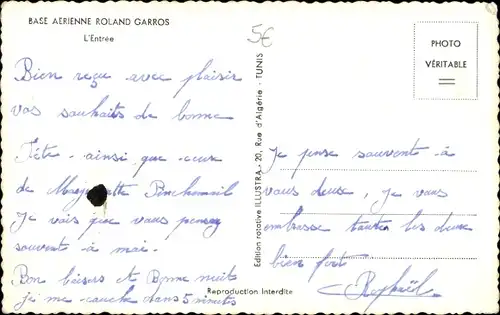 BASE AERIENNE ROLAND GARROS
L'Entrée
5€
PHOTO
VÉRITABLE
Bien reçue avec plaisir
vos souhaits de bonne
fête ainsi que ceux
de Pinchemail
Je vois que vous pensez
souvent à moi.
Bon baisers et Bonne nuits
je me couche dans 5 minutes
Edition rotative ILLUSTRA - 20, Rue d'Algérie - TUNIS
Reproduction Interdite
Je pense souvent à
vous deux, je vous
embrasse toutes les deux
bien fort
Raphaël